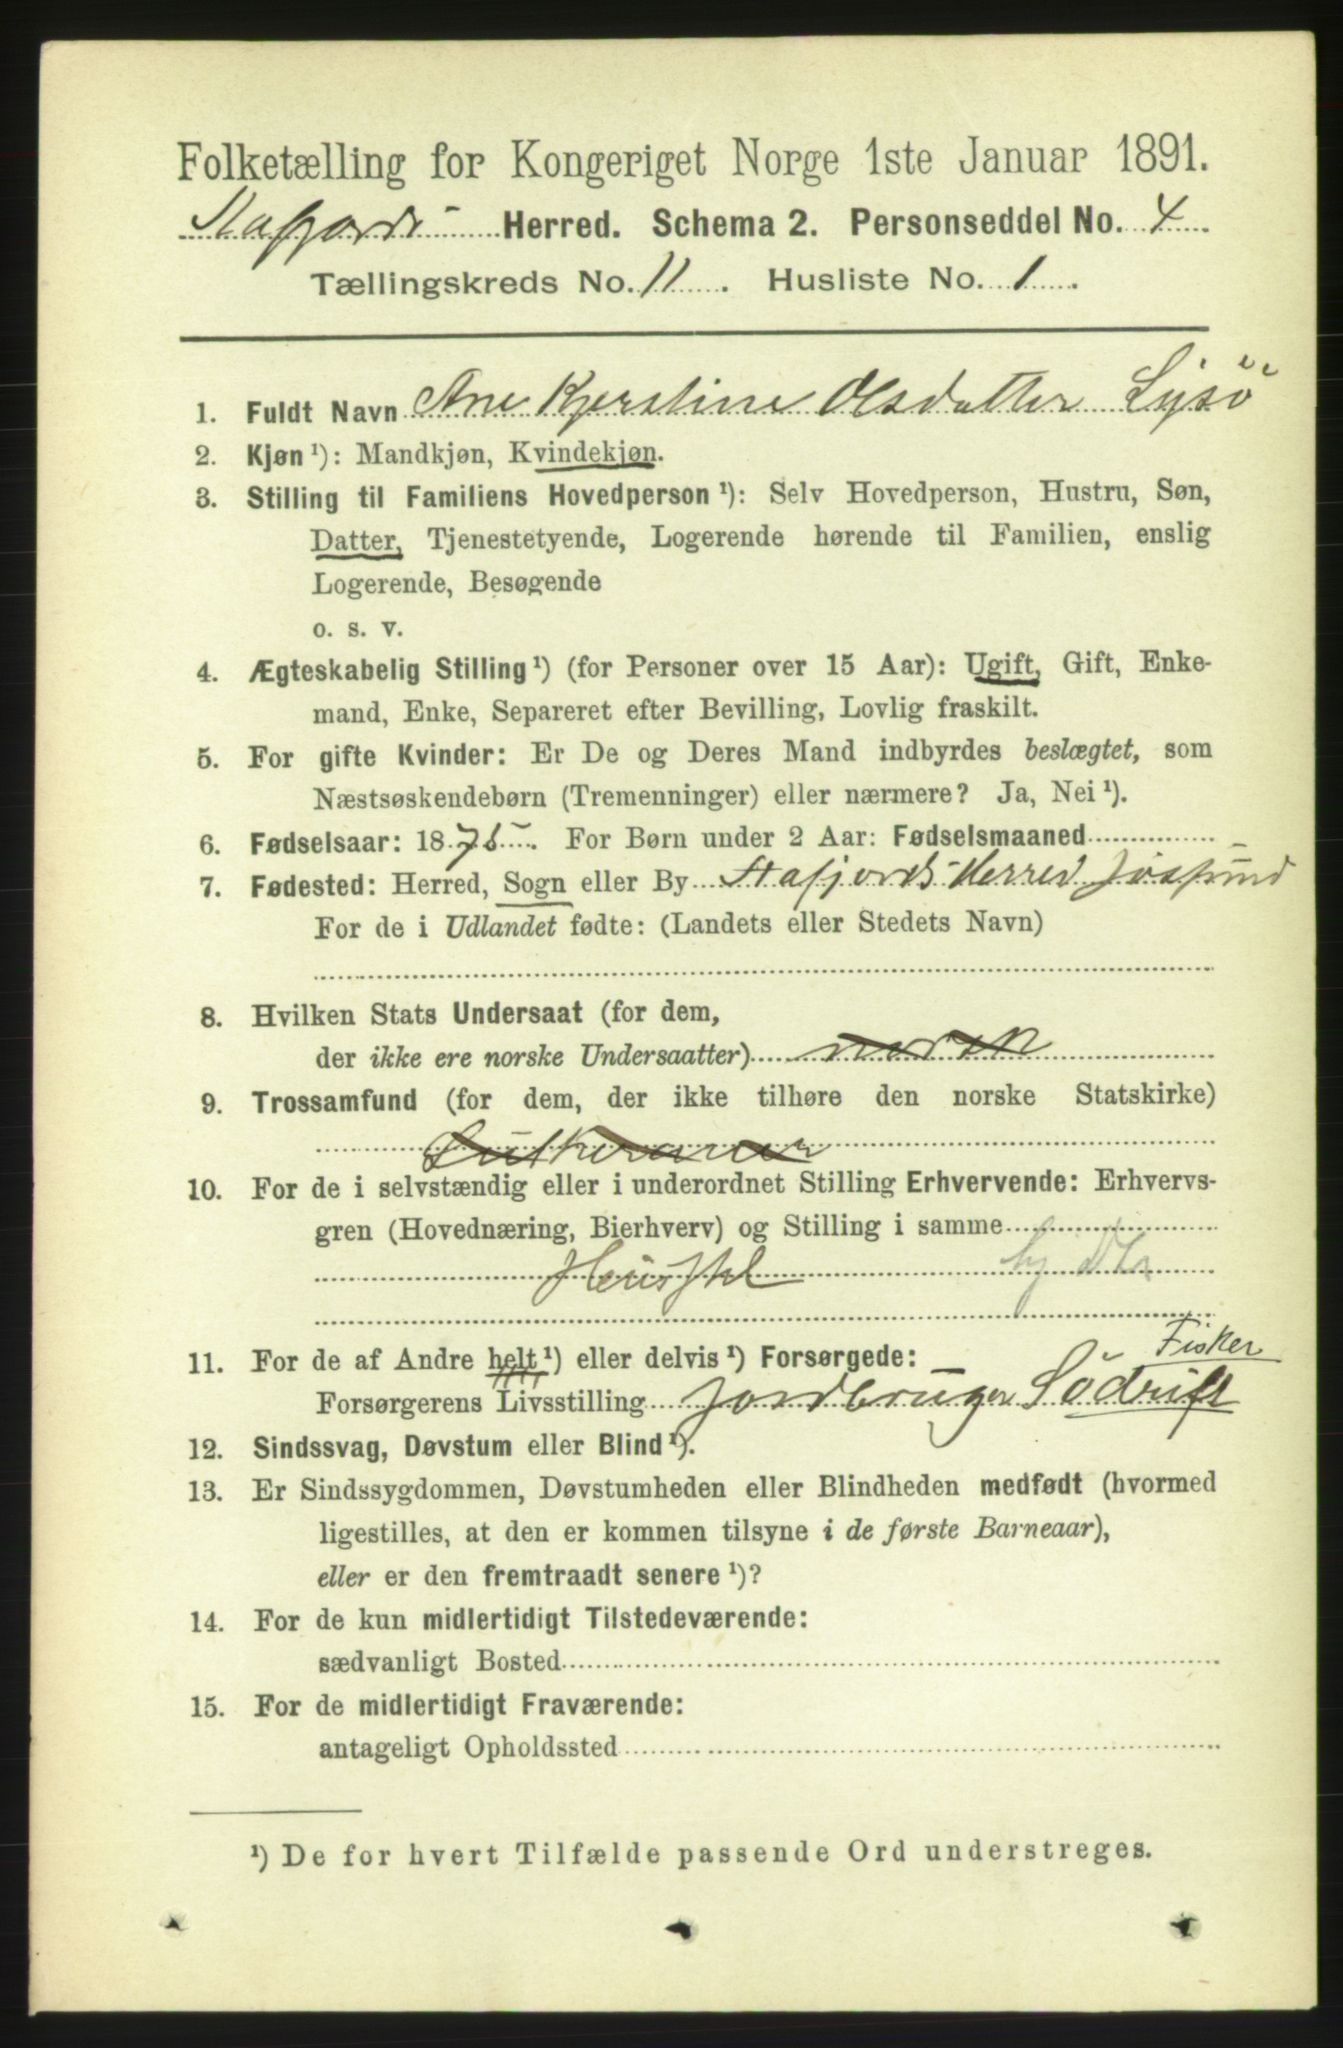 Folketælling for Kongeriget Norge 1ste Januar 1891.
Stafjords Herred. Schema 2. Personseddel No. 4
Tællingskreds No. 11. Husliste No. 1.
1. Fuldt Navn Ane Kjerstine Olsdatter Lysö
2. Kjøn ¹): Mandkjøn, Kvindekjøn.
3. Stilling til Familiens Hovedperson ¹): Selv Hovedperson, Hustru, Søn,
Datter, Tjenestetyende, Logerende hørende til Familien, enslig
Logerende, Besøgende
o. s. v.
4. Ægteskabelig Stilling ¹) (for Personer over 15 Aar): Ugift, Gift, Enke-
mand, Enke, Separeret efter Bevilling, Lovlig fraskilt.
5. For gifte Kvinder: Er De og Deres Mand indbyrdes beslægtet, som
Næstsøskendebørn (Tremenninger) eller nærmere? Ja, Nei ¹).
6. Fødselsaar: 1875. For Børn under 2 Aar: Fødselsmaaned
7. Fødested: Herred, Sogn eller By Stafjords Herred Jøssund
For de i Udlandet fødte: (Landets eller Stedets Navn)
8. Hvilken Stats Undersaat (for dem,
der ikke ere norske Undersaatter) norsk
9. Trossamfund (for dem, der ikke tilhøre den norske Statskirke)
Lutheraner
10. For de i selvstændig eller i underordnet Stilling Erhvervende: Erhvervs-
gren (Hovednæring, Bierhverv) og Stilling i samme
hj dtr
11. For de af Andre helt ¹) eller delvis ¹) Forsørgede: Fisker
Forsørgerens Livsstilling Jordbruger Södrift
12. Sindssvag, Døvstum eller Blind ¹).
13. Er Sindssygdommen, Døvstumheden eller Blindheden medfødt (hvormed
ligestilles, at den er kommen tilsyne i de første Barneaar),
eller er den fremtraadt senere ¹)?
14. For de kun midlertidigt Tilstedeværende:
sædvanligt Bosted
15. For de midlertidigt Fraværende:
antageligt Opholdssted
¹) De for hvert Tilfælde passende Ord understreges.